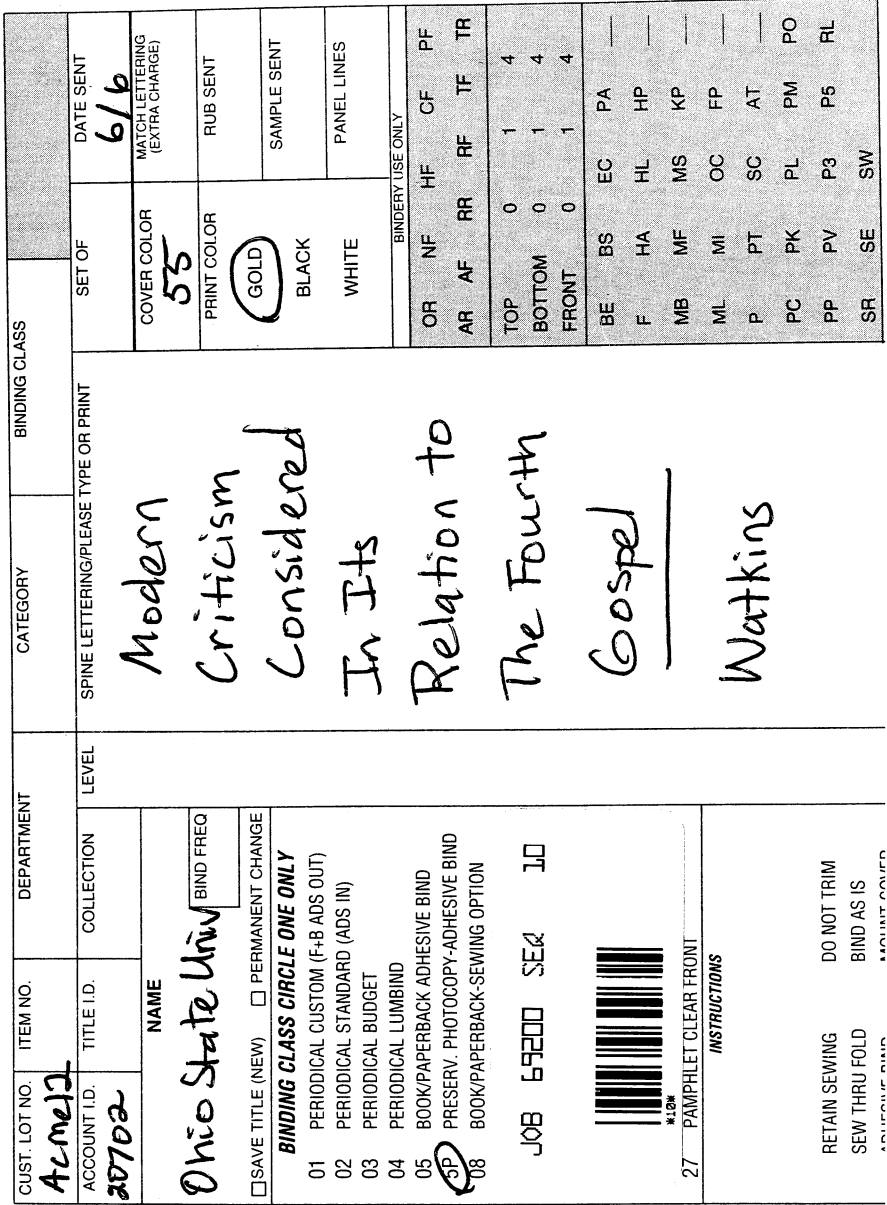 CUST. LOT NO. ITEM NO. DEPARTMENT CATEGORY BINDING CLASS
Acme12
ACCOUNT I.D. TITLE I.D. COLLECTION LEVEL
20702
NAME
Ohio State Univ
BIND FREQ
SAVE TITLE (NEW) PERMANENT CHANGE
BINDING CLASS CIRCLE ONE ONLY
01 PERIODICAL CUSTOM (F+B ADS OUT)
02 PERIODICAL STANDARD (ADS IN)
03 PERIODICAL BUDGET
04 PERIODICAL LUMBIND
05 BOOK/PAPERBACK ADHESIVE BIND
5P PRESERV. PHOTOCOPY-ADHESIVE BIND
08 BOOK/PAPERBACK-SEWING OPTION
JOB 69200 SEQ 10
*10*
27 PAMPHLET CLEAR FRONT
INSTRUCTIONS
RETAIN SEWING DO NOT TRIM
SEW THRU FOLD BIND AS IS
ADHESIVE BIND MOUNT COVER
SPINE LETTERING/PLEASE TYPE OR PRINT
Modern
Criticism
Considered
In Its
Relation to
The Fourth
Gospel
Watkins
SET OF
DATE SENT
6/6
COVER COLOR
55
MATCH LETTERING
(EXTRA CHARGE)
PRINT COLOR
GOLD
BLACK
WHITE
RUB SENT
SAMPLE SENT
PANEL LINES
BINDERY USE ONLY
OR NF HF CF PF
AR AF RR RF TF TR
TOP 0 1 4
BOTTOM 0 1 4
FRONT 0 1 4
BE BS EC PA
F HA HL HP
MB MF MS KP
ML MI OC FP
P PT SC AT
PC PK PL PM PO
PP PV P3 P5 RL
SR SE SW